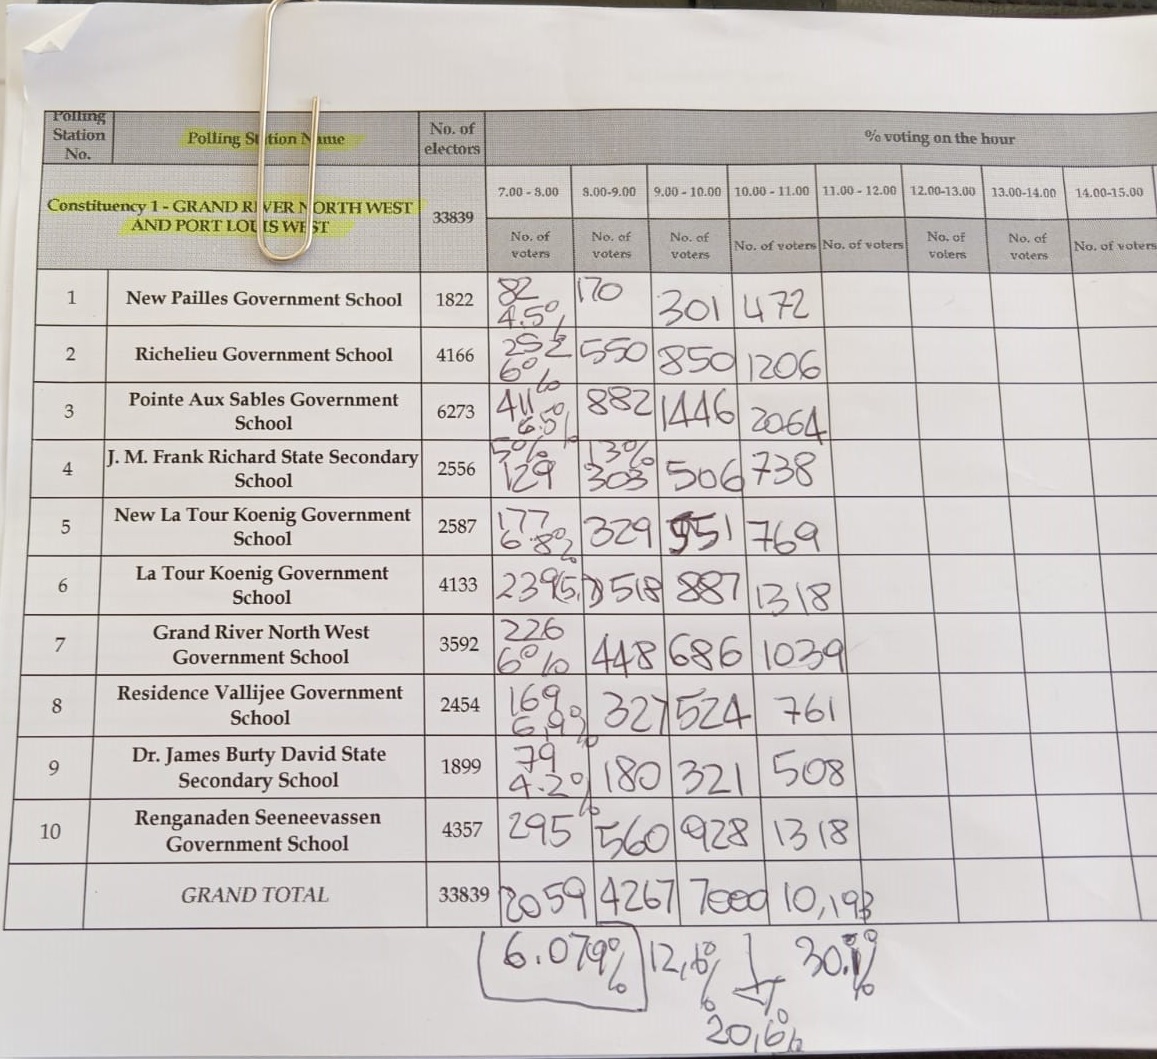 Polling Station No. Polling Station Name No. of electors % voting on the hour
Constituency 1 - GRAND RIVER NORTH WEST AND PORT LOUIS WEST 33839 7.00 - 8.00 8.00-9.00 9.00 - 10.00 10.00 - 11.00 11.00 - 12.00 12.00-13.00 13.00-14.00 14.00-15.00
No. of voters No. of voters No. of voters No. of voters No. of voters No. of voters No. of voters No. of voters
1 New Pailles Government School 1822 82 4.5% 170 301 472
2 Richelieu Government School 4166 252 6% 550 850 1206
3 Pointe Aux Sables Government School 6273 411 6.5% 882 1446 2064
4 J. M. Frank Richard State Secondary School 2556 5% 129 13% 303 506 738
5 New La Tour Koenig Government School 2587 177 6.8% 329 551 769
6 La Tour Koenig Government School 4133 239 518 887 1318
7 Grand River North West Government School 3592 226 6% 448 686 1039
8 Residence Vallijee Government School 2454 169 6,9% 327 524 761
9 Dr. James Burty David State Secondary School 1899 79 4.2% 180 321 508
10 Renganaden Seeneevassen Government School 4357 295 560 928 1318
GRAND TOTAL 33839 2059 4267 7000 10,193
6.079% 12,6% 30.1%
20,6%